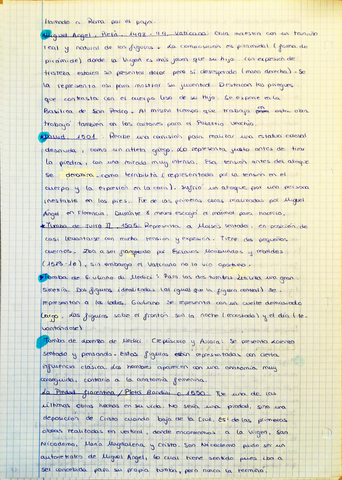 llamado a Roma por el papa.
Miguel Ángel, Pietà, 1498-99, Vaticano: Obra maestra con un tamaño
real y natural de las figuras. La composición es piramidal (forma de
pirámide) donde la Virgen es más joven que su hijo. Con expresión de
tristeza estará se presentar dolor pero sí desesperada (mano derecha). Se
la representa así para mostrar su juventud. Destacan los pliegues
que contrasta con el cuerpo liso de su hijo. Se expone en la
Basílica de San Pedro. Al mismo tiempo que trabajó en esta obra
trabajó también en los
David, 1501. Recibe una comisión para realizar una estatua colosal
desnuda, como un atleta griego. Lo representa justo antes de tirar
la piedra, con una mirada muy intensa. Esa tensión antes del ataque
se denomina como terribilità (representada por la tensión en el
cuerpo y la expresión en la cara). Sufrió un ataque por una persona
inestable en los pies. Fue de las primeras obras realizadas por Miguel
Ángel en Florencia. Durante 8 meses escogió el mármol para hacerlo.
Tumba de Julio II, 1505: Representa a Moisés sentado, en posición de
casi levantarse con mucha tensión y expresión. Tiene dos pequeños
cuernos. Iba a ser por Esclavos Moribundos y rebeldes
(1513-16), sin embargo el Vaticano no lo vio oportuno.
Tumba de Giuliano de Medici: Para las dos tumbas una gran
simetría. Dos figures idealizadas (al igual que la figura central) se
representan a los lados. Giuliano se representa con un cuello demasiado
largo. Las figuras sobre el frontón son la noche (recostada) y el día (le-
vantándose)
Tumba de Lorenzo de Medici: Crepúsculo y Aurora. Se presenta Lorenzo
sentado y pensando. Estas figuras están representadas con cierta
influencia clásica. Los hombres aparecen con una anatomía muy
conseguida, contraria a la anatomía femenina.
La Piedad florentina / Pietà Bandini c. 1550: Fue una de las
últimas obras hechas en su vida. No sería una piedad, sino una
deposición de Cristo cuando baja de la Cruz. Es de las primeras
obras realizadas en vertical, donde encontramos a la Virgen, San
Nicodemo, María Magdalena y Cristo. San Nicodemo pudo ser un
autorretrato de Miguel Ángel, lo cual tiene sentido pues iba a
ser cancelada para su propia tumba, pero nunca la terminó.